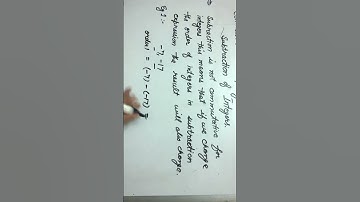 Subtraction of Integers
Subtraction is not commutative for
integers this means that if we change
the order of integers in subtraction
expression the result will also change.
Eg 1:- -7, -17
order 1 = (-7) - (-17) =